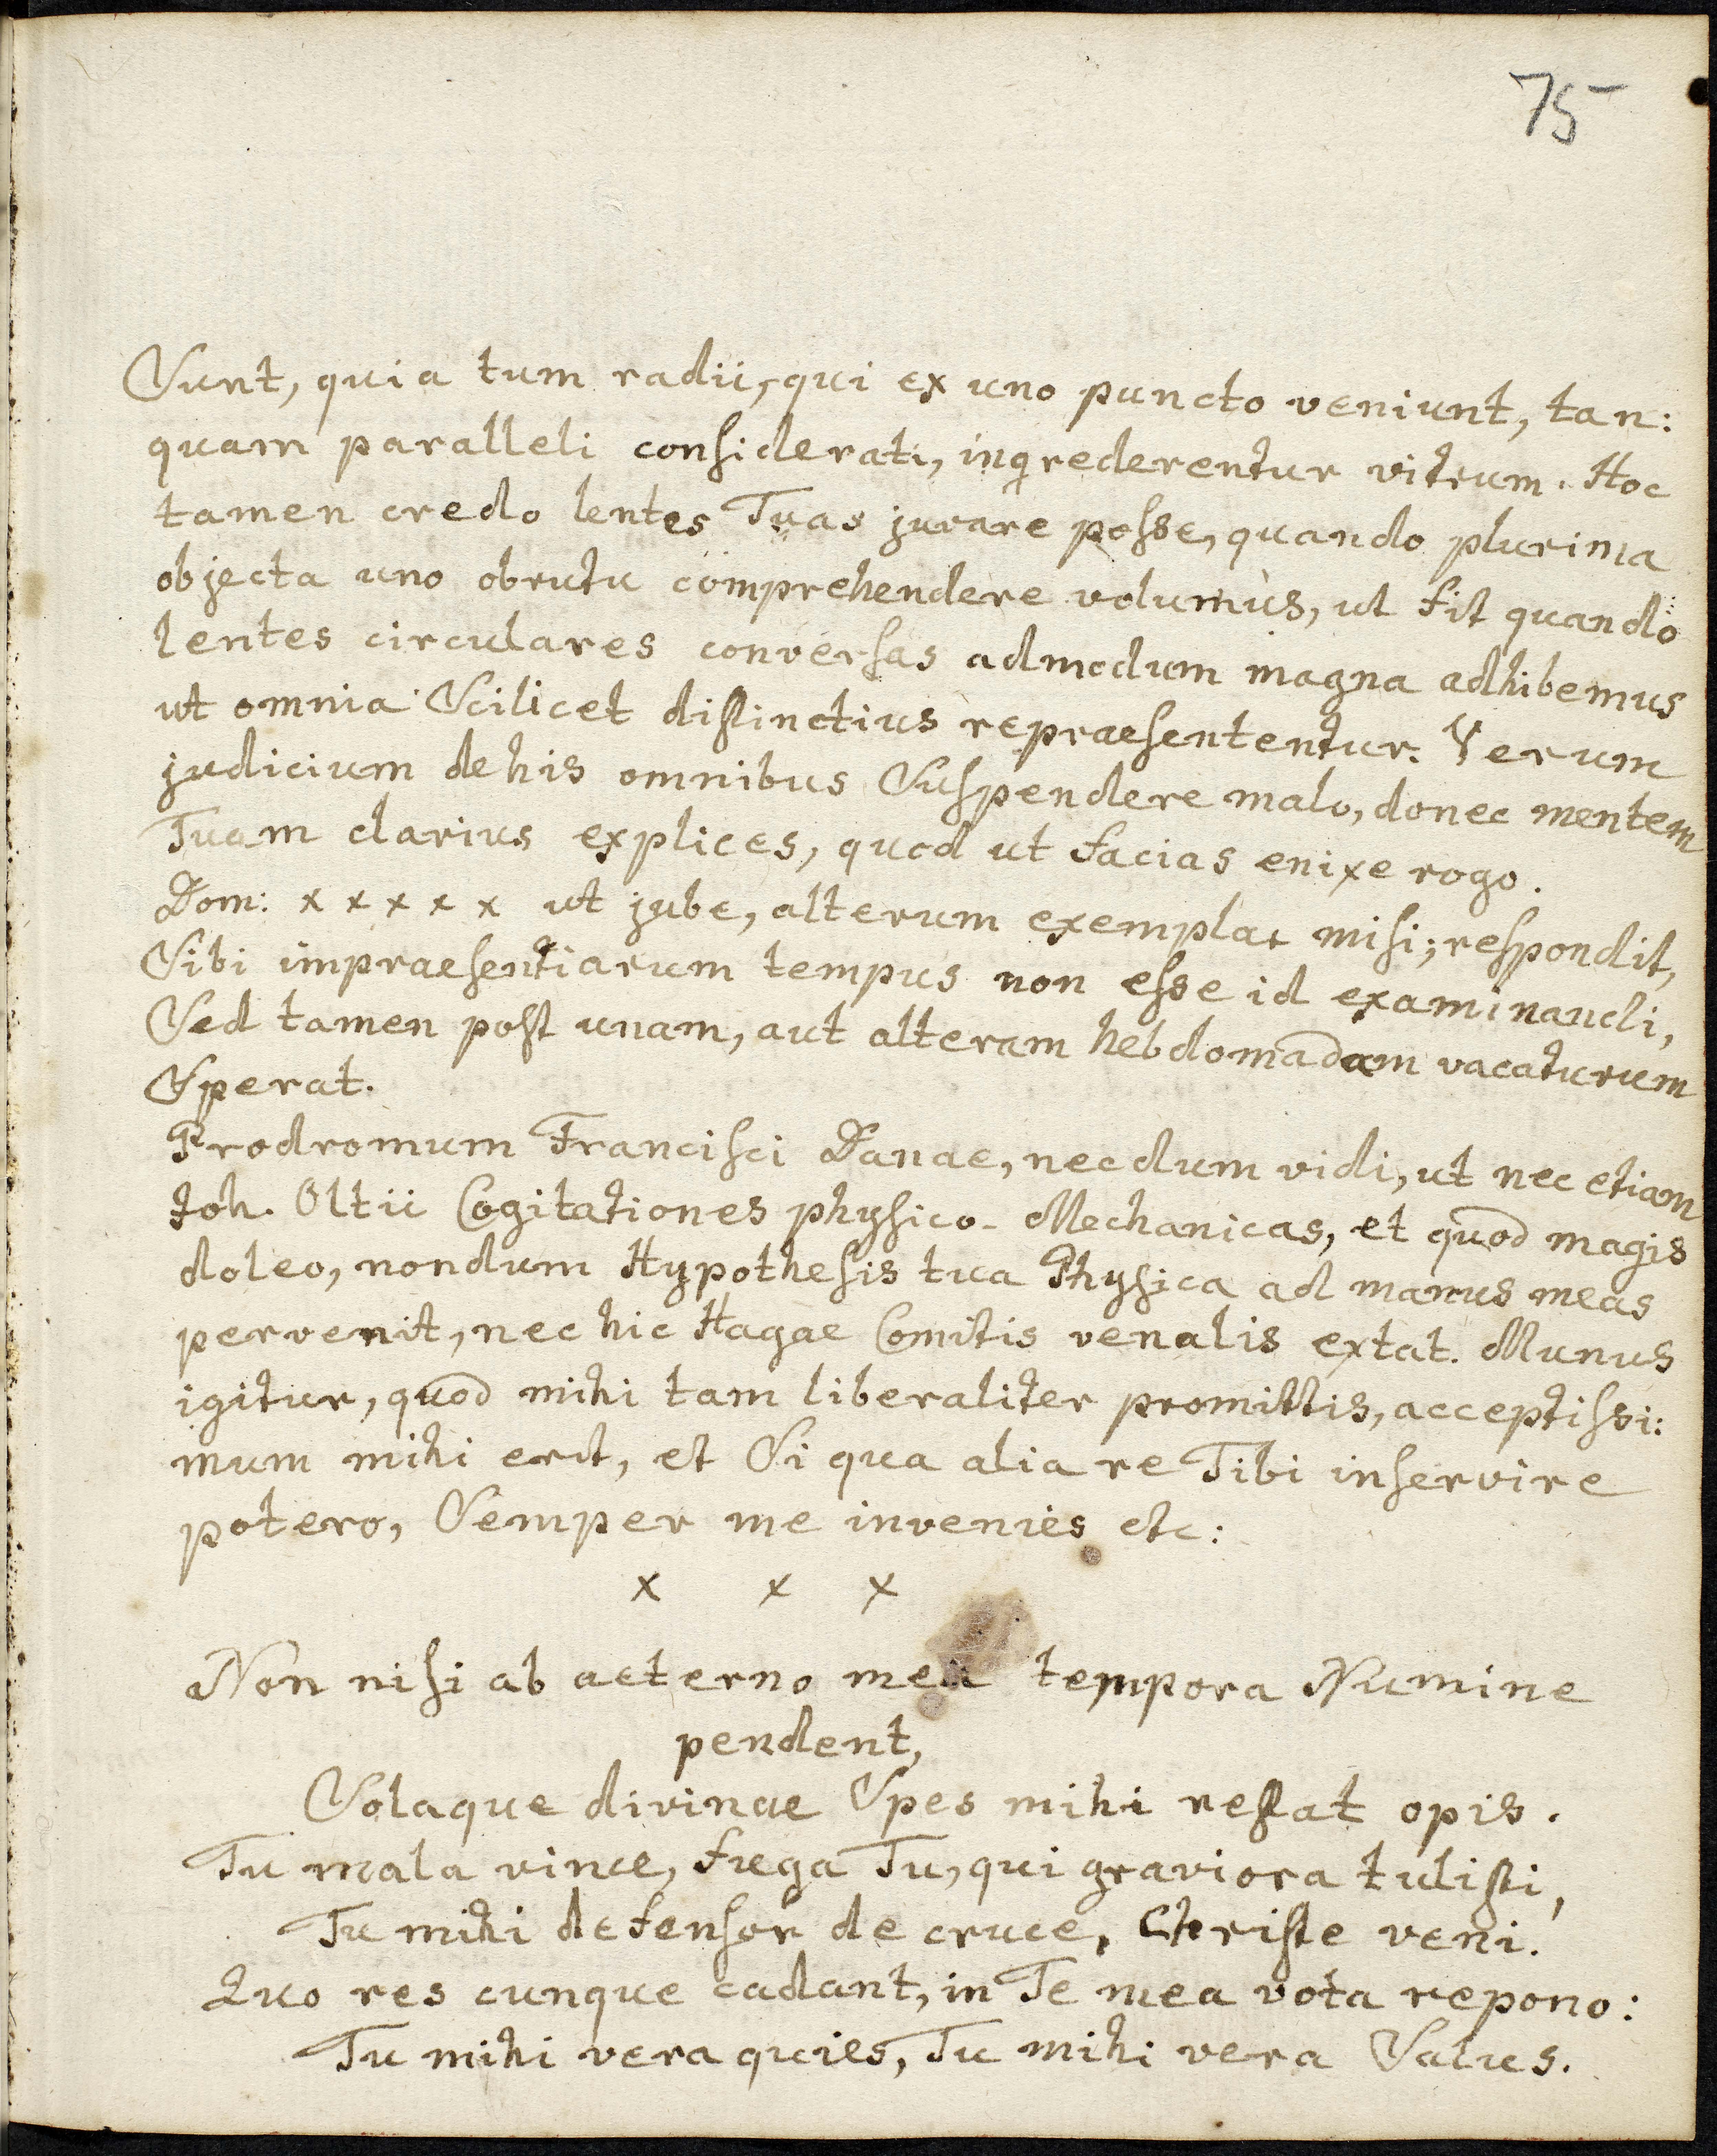 75
Sunt, quia tum radii, qui ex uno puncto veniunt, tan:
quam paralleli considerati, ingrederentur vitrum. Hoc
tamen credo lentes Tuas juvare posse, quando plurima
objecta uno obrutu comprehendere volumus, ut fit quando
lentes circulares conversas admodum magna adhibemus
ut omnia Scilicet distinctius repraesententur. Verum
judicium de his omnibus Suspendere malo, donec mentem
Tuam clarius explices, quod ut facias enixe rogo.
Dom: x x x x x ut jube, alterum exemplar misi; respondit,
Sibi impraesentiarum tempus non esse id examinandi,
Sed tamen post unam, aut alteram hebdomadam vacaturum
Sperat.
Prodromum Francisci Danae, necdum vidi, ut nec etiam
Joh. Oltii Cogitationes physico-Mechanicas, et quod magis
doleo, nondum Hypothesis tua Physica ad manus meas
pervenit, nec hic Hagae Comitis venalis extat. Munus
igitur, quod mihi tam liberaliter promittis, acceptissi:
mum mihi erit, et Si qua alia re Tibi inservire
potero, Semper me invenies etc:
x x x
Non nisi ab aeterno mea tempora Numine
pendent,
Solaque divinae Spes mihi restat opis.
Tu mala vince, fuga Tu, qui graviora tulisti,
Tu mihi defensor de cruce, Christe veni.
Quo res cunque cadant, in Te mea vota repono:
Tu mihi vera quies, Tu mihi vera Salus.